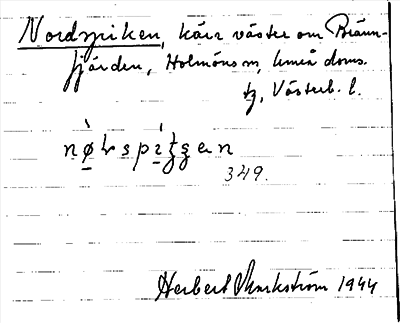 Nordspiken, kärr väster om Bränn-
fjärden, Holmöns sn, Umeå doms.
tg, Västerb. l.
nø̀ɽspìʈʂʂen
349.
Herbert Markström 1944